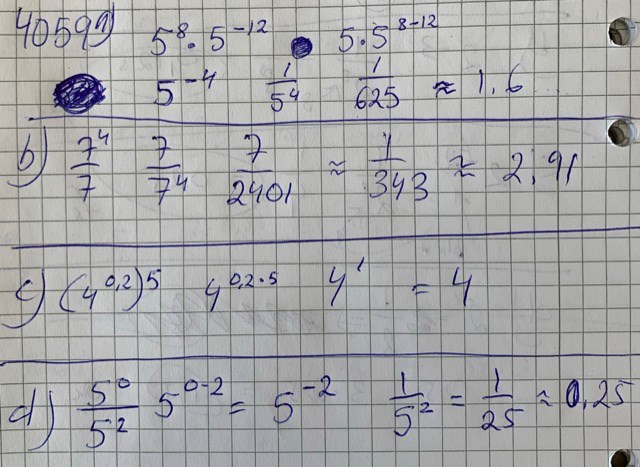 4059 a) 5⁸·5⁻¹² 5·5⁸⁻¹²
5⁻⁴ 1/5⁴ 1/625 ≈ 1,6
b) 7⁴/7 7/7⁴ 7/2401 ≈ 1/343 ≈ 2,91
c) (4^0,2)⁵ 4^0,2·5 4¹ = 4
d) 5⁰/5² 5⁰⁻² = 5⁻² 1/5² = 1/25 ≈ 0,25